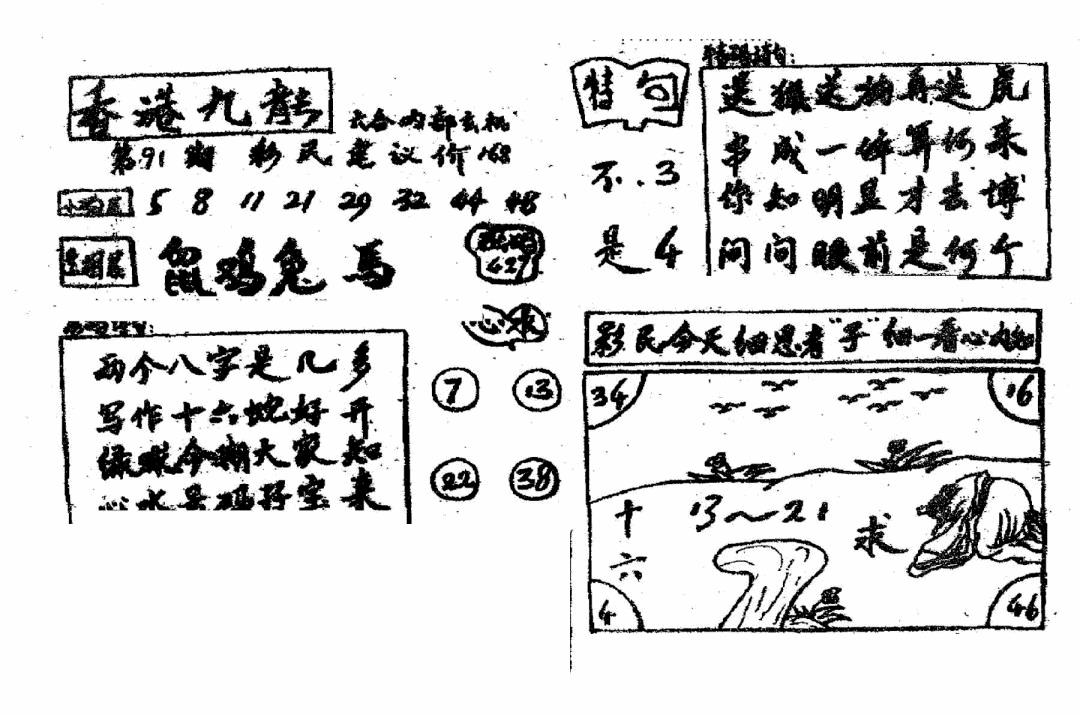 香港九龍
六合内部玄机
第91期 彩民建议价168
5 8 11 21 29 32 44 48
鼠鸡兔馬
427
两个八字是几多
写作十六蛇好开
绿球今期大家知
心水号码好宝来
心水
7 13
22 38
特码诗句:
特句
不.3
是4
送猴送狗再送虎
串成一体算何来
你知明显才去博
问问眼前是何个
彩民今天细思考"子"细一看心
34 16
十六
13～21
求
4 46